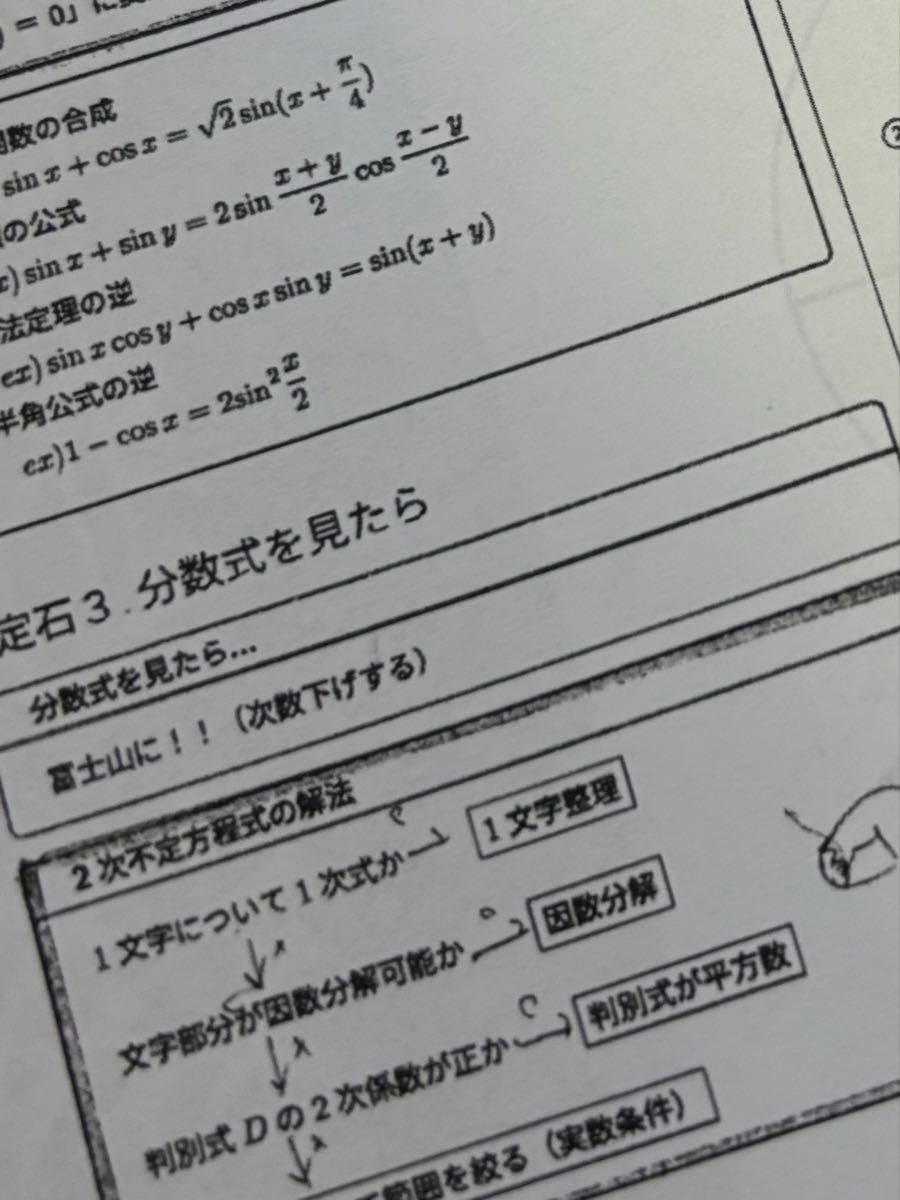 = 0」に
関数の合成
sin x + cos x = √2 sin(x + π/4)
の公式
x) sin x + sin y = 2 sin (x + y)/2 cos (x − y)/2
法定理の逆
ex) sin x cos y + cos x sin y = sin(x + y)
半角公式の逆
ex) 1 − cos x = 2 sin² x/2
定石3. 分数式を見たら
分数式を見たら...
富士山に！！（次数下げする）
2次不定方程式の解法
1文字について1次式か → 1文字整理
↓×
文字部分が因数分解可能か → 因数分解
↓×
判別式Dの2次係数が正か → 判別式が平方数
↓×
範囲を絞る（実数条件）